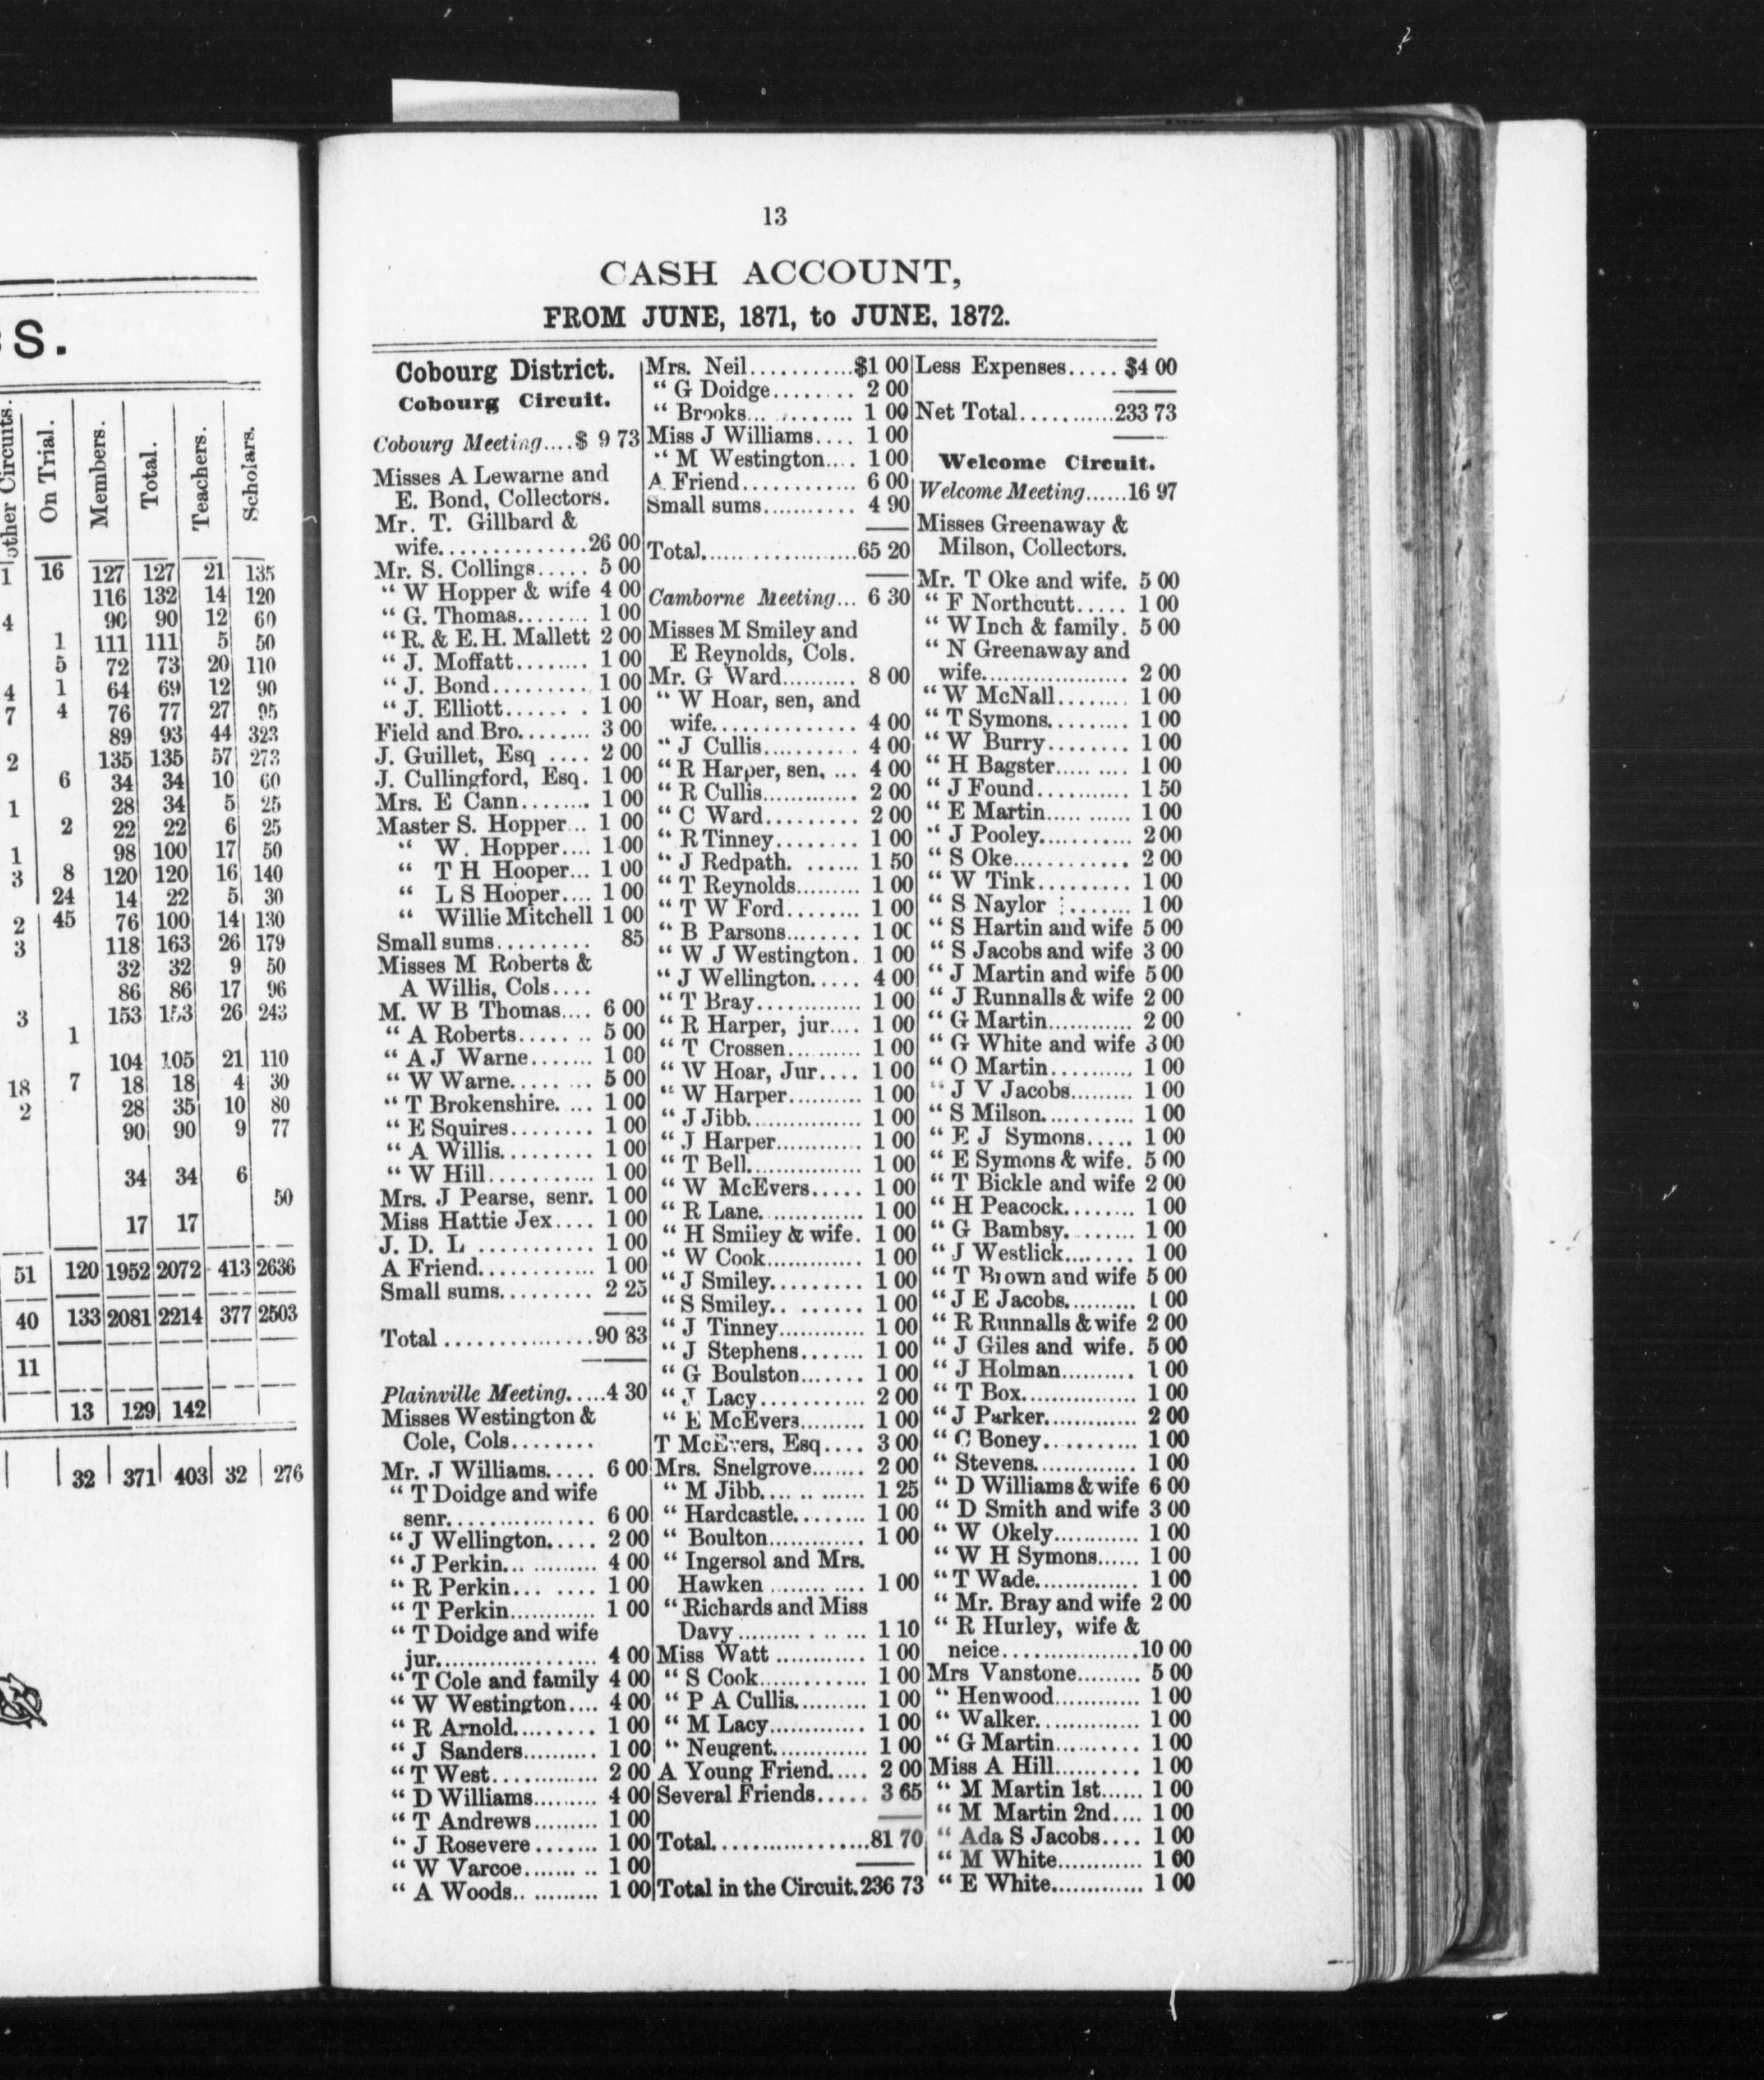 S.
other Circuits.
On Trial.
Members.
Total.
Teachers.
Scholars.
1 16 127 127 21 135
116 132 14 120
4 90 90 12 60
1 111 111 5 50
5 72 73 20 110
4 1 64 69 12 90
7 4 76 77 27 95
89 93 44 323
2 135 135 57 273
6 34 34 10 60
1 28 34 5 25
2 22 22 6 25
1 98 100 17 50
3 8 120 120 16 140
24 14 22 5 30
2 45 76 100 14 130
3 118 163 26 179
32 32 9 50
86 86 17 96
3 153 153 26 243
1
104 105 21 110
18 7 18 18 4 30
2 28 35 10 80
90 90 9 77
34 34 6
50
17 17
51 120 1952 2072 413 2636
40 133 2081 2214 377 2503
11
13 129 142
32 371 403 32 276
13
CASH ACCOUNT,
FROM JUNE, 1871, to JUNE, 1872.
Cobourg District.
Cobourg Circuit.
Cobourg Meeting....$ 9 73
Misses A Lewarne and
E. Bond, Collectors.
Mr. T. Gillbard &
wife..............26 00
Mr. S. Collings..... 5 00
“ W Hopper & wife 4 00
“ G. Thomas........ 1 00
“ R. & E. H. Mallett 2 00
“ J. Moffatt........ 1 00
“ J. Bond.......... 1 00
“ J. Elliott........ 1 00
Field and Bro........ 3 00
J. Guillet, Esq .... 2 00
J. Cullingford, Esq. 1 00
Mrs. E Cann........ 1 00
Master S. Hopper... 1 00
“ W. Hopper.... 1 00
“ T H Hooper... 1 00
“ L S Hooper.... 1 00
“ Willie Mitchell 1 00
Small sums......... 85
Misses M Roberts &
A Willis, Cols....
M. W B Thomas.... 6 00
“ A Roberts....... 5 00
“ A J Warne....... 1 00
“ W Warne......... 5 00
“ T Brokenshire. ... 1 00
“ E Squires........ 1 00
“ A Willis......... 1 00
“ W Hill........... 1 00
Mrs. J Pearse, senr. 1 00
Miss Hattie Jex.... 1 00
J. D. L ........... 1 00
A Friend............ 1 00
Small sums......... 2 25
Total ...............90 83
Plainville Meeting.....4 30
Misses Westington &
Cole, Cols........
Mr. J Williams..... 6 00
“ T Doidge and wife
senr................ 6 00
“ J Wellington..... 2 00
“ J Perkin............ 4 00
“ R Perkin... ..... 1 00
“ T Perkin............ 1 00
“ T Doidge and wife
jur.................... 4 00
“ T Cole and family 4 00
“ W Westington.... 4 00
“ R Arnold......... 1 00
“ J Sanders.......... 1 00
“ T West............. 2 00
“ D Williams......... 4 00
“ T Andrews......... 1 00
“ J Rosevere ....... 1 00
“ W Varcoe....... .. 1 00
“ A Woods.. ......... 1 00
Mrs. Neil...........$1 00
“ G Doidge........ 2 00
“ Brooks... ........ 1 00
Miss J Williams.... 1 00
“ M Westington.... 1 00
A Friend............ 6 00
Small sums........... 4 90
Total..................65 20
Camborne Meeting... 6 30
Misses M Smiley and
E Reynolds, Cols.
Mr. G Ward.......... 8 00
“ W Hoar, sen, and
wife............... 4 00
“ J Cullis........... 4 00
“ R Harper, sen, ... 4 00
“ R Cullis............. 2 00
“ C Ward.......... 2 00
“ R Tinney......... 1 00
“ J Redpath. ...... 1 50
“ T Reynolds......... 1 00
“ T W Ford........ 1 00
“ B Parsons........ 1 00
“ W J Westington. 1 00
“ J Wellington..... 4 00
“ T Bray............ 1 00
“ R Harper, jur.... 1 00
“ T Crossen.......... 1 00
“ W Hoar, Jur.... 1 00
“ W Harper.......... 1 00
“ J Jibb................ 1 00
“ J Harper............ 1 00
“ T Bell............... 1 00
“ W McEvers..... 1 00
“ R Lane. ............. 1 00
“ H Smiley & wife. 1 00
“ W Cook............. 1 00
“ J Smiley............ 1 00
“ S Smiley.. ....... 1 00
“ J Tinney............ 1 00
“ J Stephens....... 1 00
“ G Boulston....... 1 00
“ J Lacy........... 2 00
“ E McEvers......... 1 00
T McEvers, Esq.... 3 00
Mrs. Snelgrove....... 2 00
“ M Jibb.... .. ...... 1 25
“ Hardcastle........ 1 00
“ Boulton............. 1 00
“ Ingersol and Mrs.
Hawken ............. 1 00
“ Richards and Miss
Davy ............... 1 10
Miss Watt ............ 1 00
“ S Cook............. 1 00
“ P A Cullis.......... 1 00
“ M Lacy............. 1 00
“ Neugent............. 1 00
A Young Friend..... 2 00
Several Friends..... 3 65
Total..................81 70
Total in the Circuit.236 73
Less Expenses..... $4 00
Net Total...........233 73
Welcome Circuit.
Welcome Meeting......16 97
Misses Greenaway &
Milson, Collectors.
Mr. T Oke and wife. 5 00
“ F Northcutt..... 1 00
“ W Inch & family. 5 00
“ N Greenaway and
wife.................... 2 00
“ W McNall........ 1 00
“ T Symons.......... 1 00
“ W Burry........ 1 00
“ H Bagster..... .... 1 00
“ J Found........... 1 50
“ E Martin............ 1 00
“ J Pooley........... 2 00
“ S Oke............... 2 00
“ W Tink.......... 1 00
“ S Naylor ........ 1 00
“ S Hartin and wife 5 00
“ S Jacobs and wife 3 00
“ J Martin and wife 5 00
“ J Runnalls & wife 2 00
“ G Martin............ 2 00
“ G White and wife 3 00
“ O Martin........... 1 00
“ J V Jacobs......... 1 00
“ S Milson............ 1 00
“ E J Symons..... 1 00
“ E Symons & wife. 5 00
“ T Bickle and wife 2 00
“ H Peacock........ 1 00
“ G Bambsy......... 1 00
“ J Westlick........ 1 00
“ T Brown and wife 5 00
“ J E Jacobs.......... 1 00
“ R Runnalls & wife 2 00
“ J Giles and wife. 5 00
“ J Holman.......... 1 00
“ T Box................ 1 00
“ J Parker............. 2 00
“ C Boney............ 1 00
“ Stevens.............. 1 00
“ D Williams & wife 6 00
“ D Smith and wife 3 00
“ W Okely............ 1 00
“ W H Symons...... 1 00
“ T Wade.............. 1 00
“ Mr. Bray and wife 2 00
“ R Hurley, wife &
neice.................10 00
Mrs Vanstone......... 5 00
“ Henwood............ 1 00
“ Walker.............. 1 00
“ G Martin............ 1 00
Miss A Hill.......... 1 00
“ M Martin 1st...... 1 00
“ M Martin 2nd.... 1 00
“ Ada S Jacobs.... 1 00
“ M White............ 1 00
“ E White............. 1 00